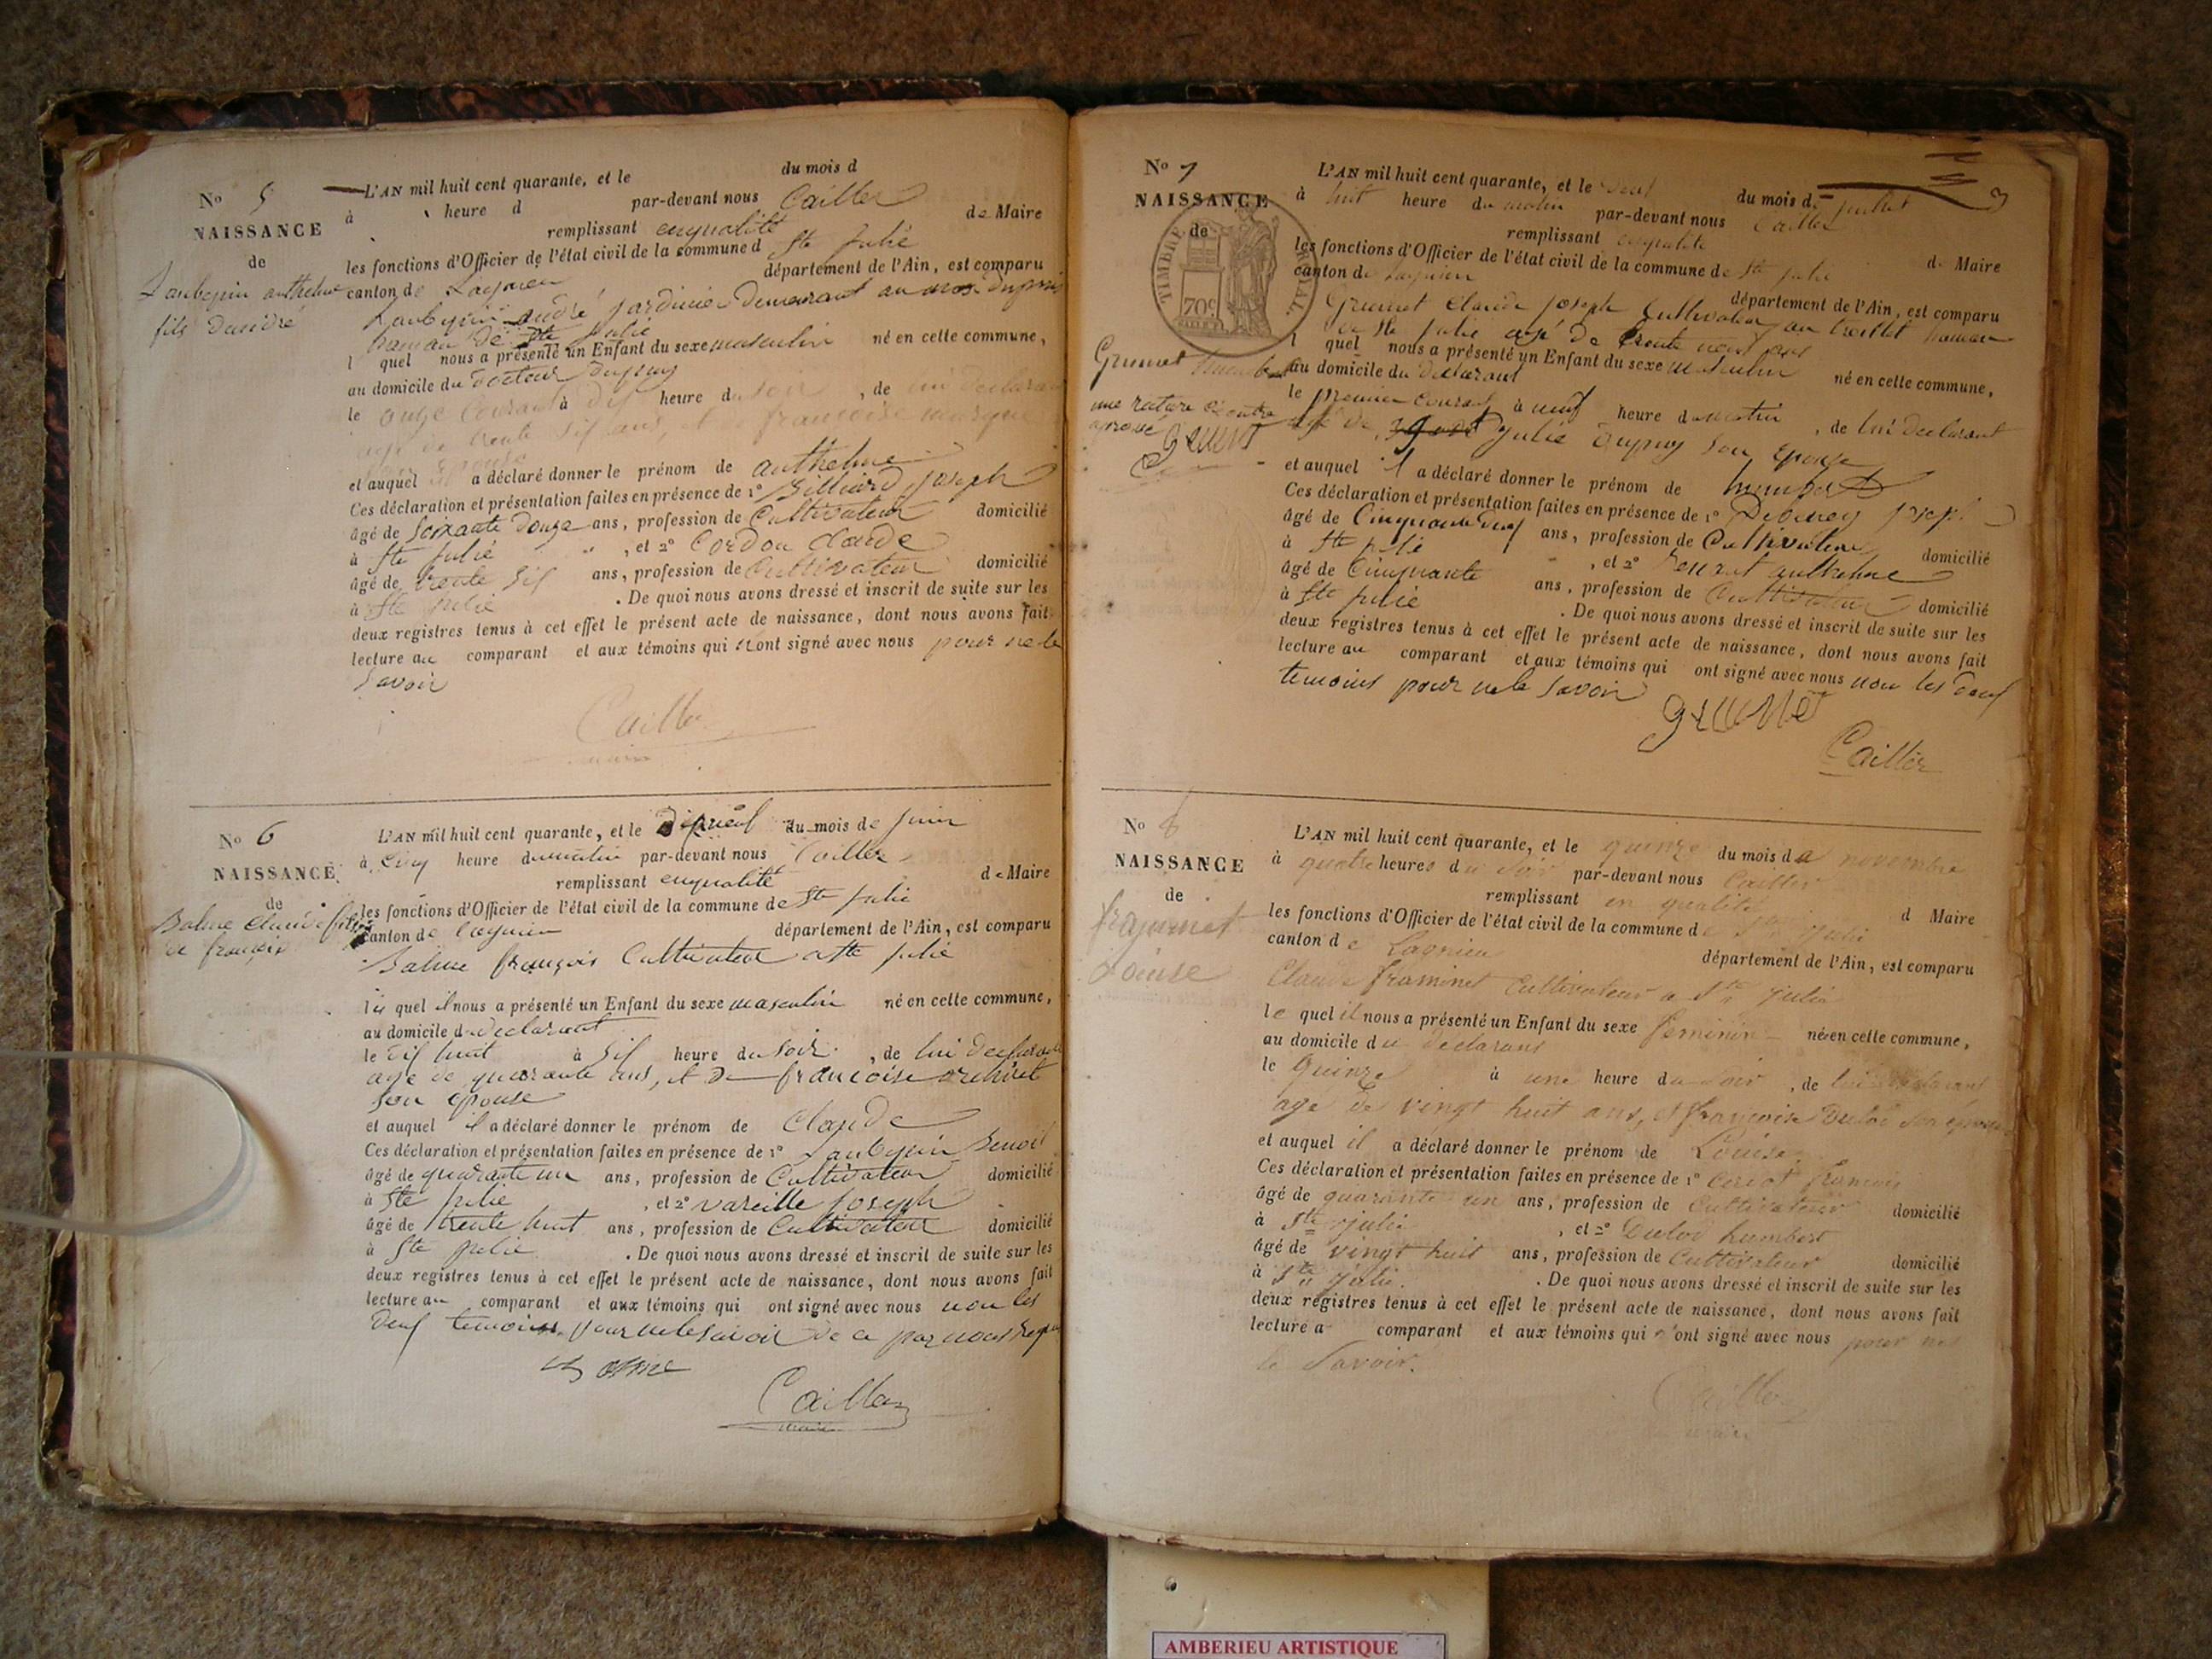 No 5
NAISSANCE
de
anthelme
fils
L'AN mil huit cent quarante, et le du mois d
à heure d par-devant nous Cailler
remplissant enqualité de Maire
les fonctions d'Officier de l'état civil de la commune d Ste Julie
canton de Lagnieu département de l'Ain, est comparu
andré Jardinier Demeurant au
hameau de Ste Julie
l quel nous a présenté un Enfant du sexe masculin né en cette commune,
au domicile du Docteur Dupuy
le onze Courant à dix heure du soir, de lui declarant
agé de trente six ans, et de francoise
son Epouse
et auquel il a déclaré donner le prénom de anthelme
Ces déclaration et présentation faites en présence de 1° Billiard Joseph
âgé de Soixante Douze ans, profession de Cultivateur domicilié
à Ste Julie " , et 2° Cordon Claude
âgé de trente Six ans, profession de Cultivateur domicilié
à Ste Julie . De quoi nous avons dressé et inscrit de suite sur les
deux registres tenus à cet effet le présent acte de naissance, dont nous avons fait
lecture au comparant et aux témoins qui n'ont signé avec nous pour ne le
Savoir
Cailler
maire
No 6
NAISSANCE
de
Balme Claude fils
de françois
L'AN mil huit cent quarante, et le Dixneuf du mois de Juin
à cinq heure du matin par-devant nous Cailler
remplissant enqualité de Maire
les fonctions d'Officier de l'état civil de la commune de Ste Julie
canton de Lagnieu département de l'Ain, est comparu
Balme françois Cultivateur a Ste Julie
le quel il nous a présenté un Enfant du sexe masculin né en cette commune,
au domicile du declarant
le dix huit à Six heure du Soir, de lui declarant
agé de quarante ans, et De francoise
son epouse
et auquel il a déclaré donner le prénom de Claude
Ces déclaration et présentation faites en présence de 1° Benoit
âgé de quarante un ans, profession de Cultivateur domicilié
à Ste Julie , et 2° vareille Joseph
âgé de trente huit ans, profession de Cultivateur domicilié
à Ste Julie . De quoi nous avons dressé et inscrit de suite sur les
deux registres tenus à cet effet le présent acte de naissance, dont nous avons fait
lecture au comparant et aux témoins qui ont signé avec nous non les
Deux temoins pour ne le Savoir de ce par nous
Cailler
maire
No 7
NAISSANCE
de
TIMBRE
70c
Grumet
une rature
L'AN mil huit cent quarante, et le du mois de Juillet
à huit heure du matin par-devant nous Cailler
remplissant enqualité de Maire
les fonctions d'Officier de l'état civil de la commune de Ste Julie
canton de Lagnieu département de l'Ain, est comparu
Grumet Claude Joseph Cultivateur au trolliet hameau
de Ste Julie agé de trente neuf ans
l quel nous a présenté un Enfant du sexe masculin né en cette commune,
au domicile du declarant
le premier courant à neuf heure du matin, de lui declarant
et de Julie Dupuy Son Epouse
et auquel il a déclaré donner le prénom de humbert
Ces déclaration et présentation faites en présence de 1° Joseph
âgé de Cinquante Deux ans, profession de Cultivateur domicilié
à Ste Julie , et 2° anthelme
âgé de Cinquante ans, profession de Cultivateur domicilié
à Ste Julie . De quoi nous avons dressé et inscrit de suite sur les
deux registres tenus à cet effet le présent acte de naissance, dont nous avons fait
lecture au comparant et aux témoins qui ont signé avec nous non les deux
temoins pour ne le Savoir
Cailler
No 8
NAISSANCE
de
Louise
L'AN mil huit cent quarante, et le quinze du mois de novembre
à quatre heures du soir par-devant nous Cailler
remplissant en qualité d Maire
les fonctions d'Officier de l'état civil de la commune de Ste Julie
canton de Lagnieu département de l'Ain, est comparu
Claude Cultivateur a Ste Julie
le quel il nous a présenté un Enfant du sexe féminin née en cette commune,
au domicile du declarant
le Quinze à une heure du soir, de lui declarant
agé de vingt huit ans, et françoise Dulod son epouse
et auquel il a déclaré donner le prénom de Louise
Ces déclaration et présentation faites en présence de 1° françois
âgé de quarante un ans, profession de Cultivateur domicilié
à Ste Julie , et 2° Dulod humbert
âgé de vingt huit ans, profession de Cultivateur domicilié
à Ste Julie . De quoi nous avons dressé et inscrit de suite sur les
deux registres tenus à cet effet le présent acte de naissance, dont nous avons fait
lecture a comparant et aux témoins qui n'ont signé avec nous pour ne
le Savoir.
Cailler
maire
AMBERIEU ARTISTIQUE